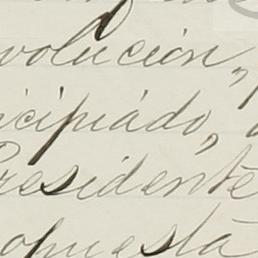 volución,
icipiado,
Presidente
opuesta